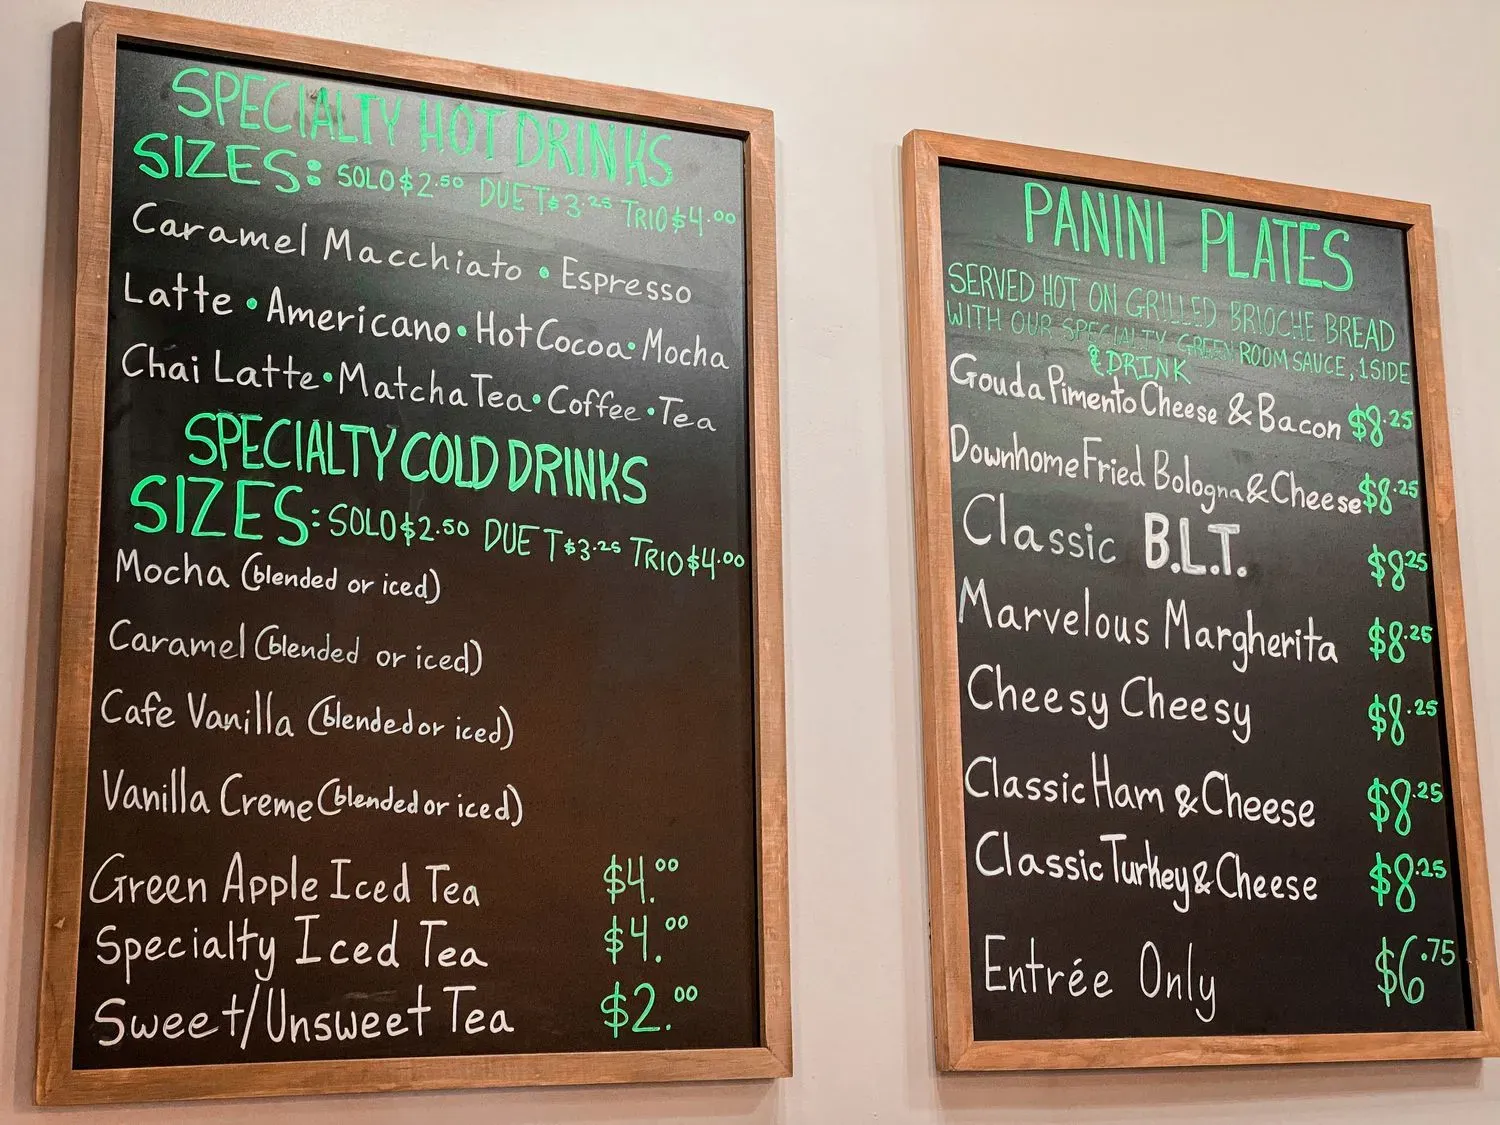 SPECIALTY HOT DRINKS
SIZES: SOLO $2.50 DUET $3.25 TRIO $4.00
Caramel Macchiato • Espresso
Latte • Americano • Hot Cocoa • Mocha
Chai Latte • Matcha Tea • Coffee • Tea
SPECIALTY COLD DRINKS
SIZES: SOLO $2.50 DUET $3.25 TRIO $4.00
Mocha (blended or iced)
Caramel (blended or iced)
Cafe Vanilla (blended or iced)
Vanilla Creme (blended or iced)
Green Apple Iced Tea $4.00
Specialty Iced Tea $4.00
Sweet/Unsweet Tea $2.00
PANINI PLATES
SERVED HOT ON GRILLED BRIOCHE BREAD
WITH OUR SPECIALTY GREEN ROOM SAUCE, 1 SIDE
& DRINK
Gouda Pimento Cheese & Bacon $8.25
Downhome Fried Bologna & Cheese $8.25
Classic B.L.T. $8.25
Marvelous Margherita $8.25
Cheesy Cheesy $8.25
Classic Ham & Cheese $8.25
Classic Turkey & Cheese $8.25
Entrée Only $6.75